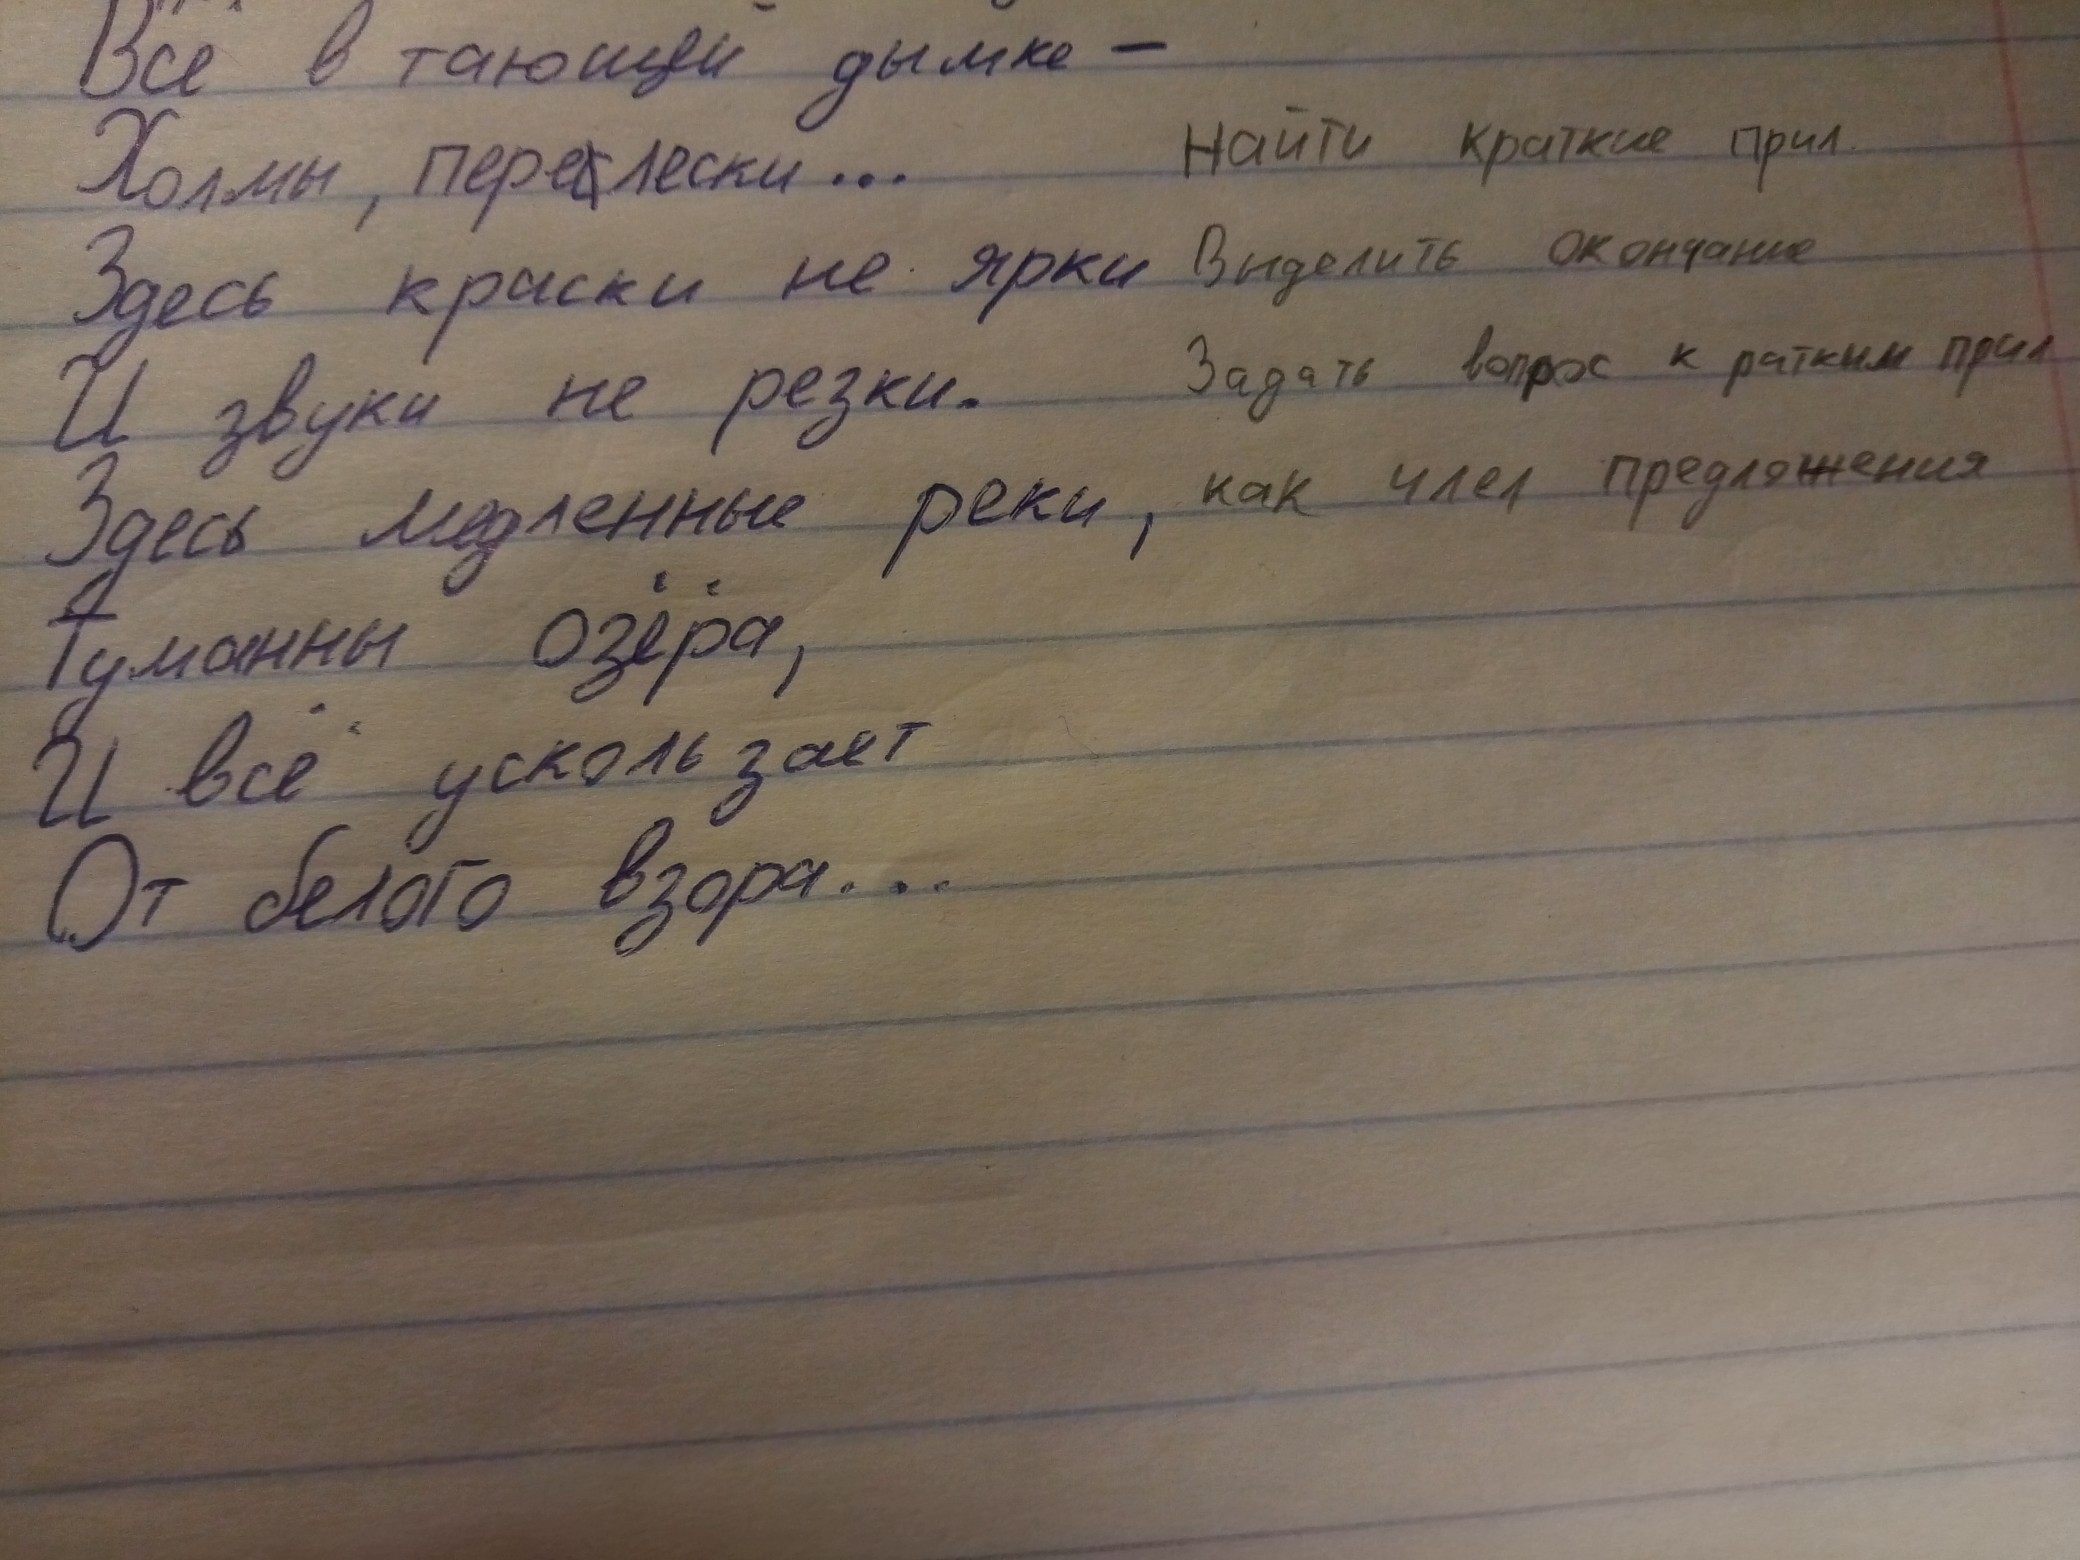 Всё в тающей дымке –
Холмы, перелески...
Найти краткие прил.
Здесь краски не ярки
Выделить окончание
И звуки не резки.
Задать вопрос к ратким прил
Здесь медленные реки,
как член предложения
Туманны озёра,
И всё ускользает
От белого взора...